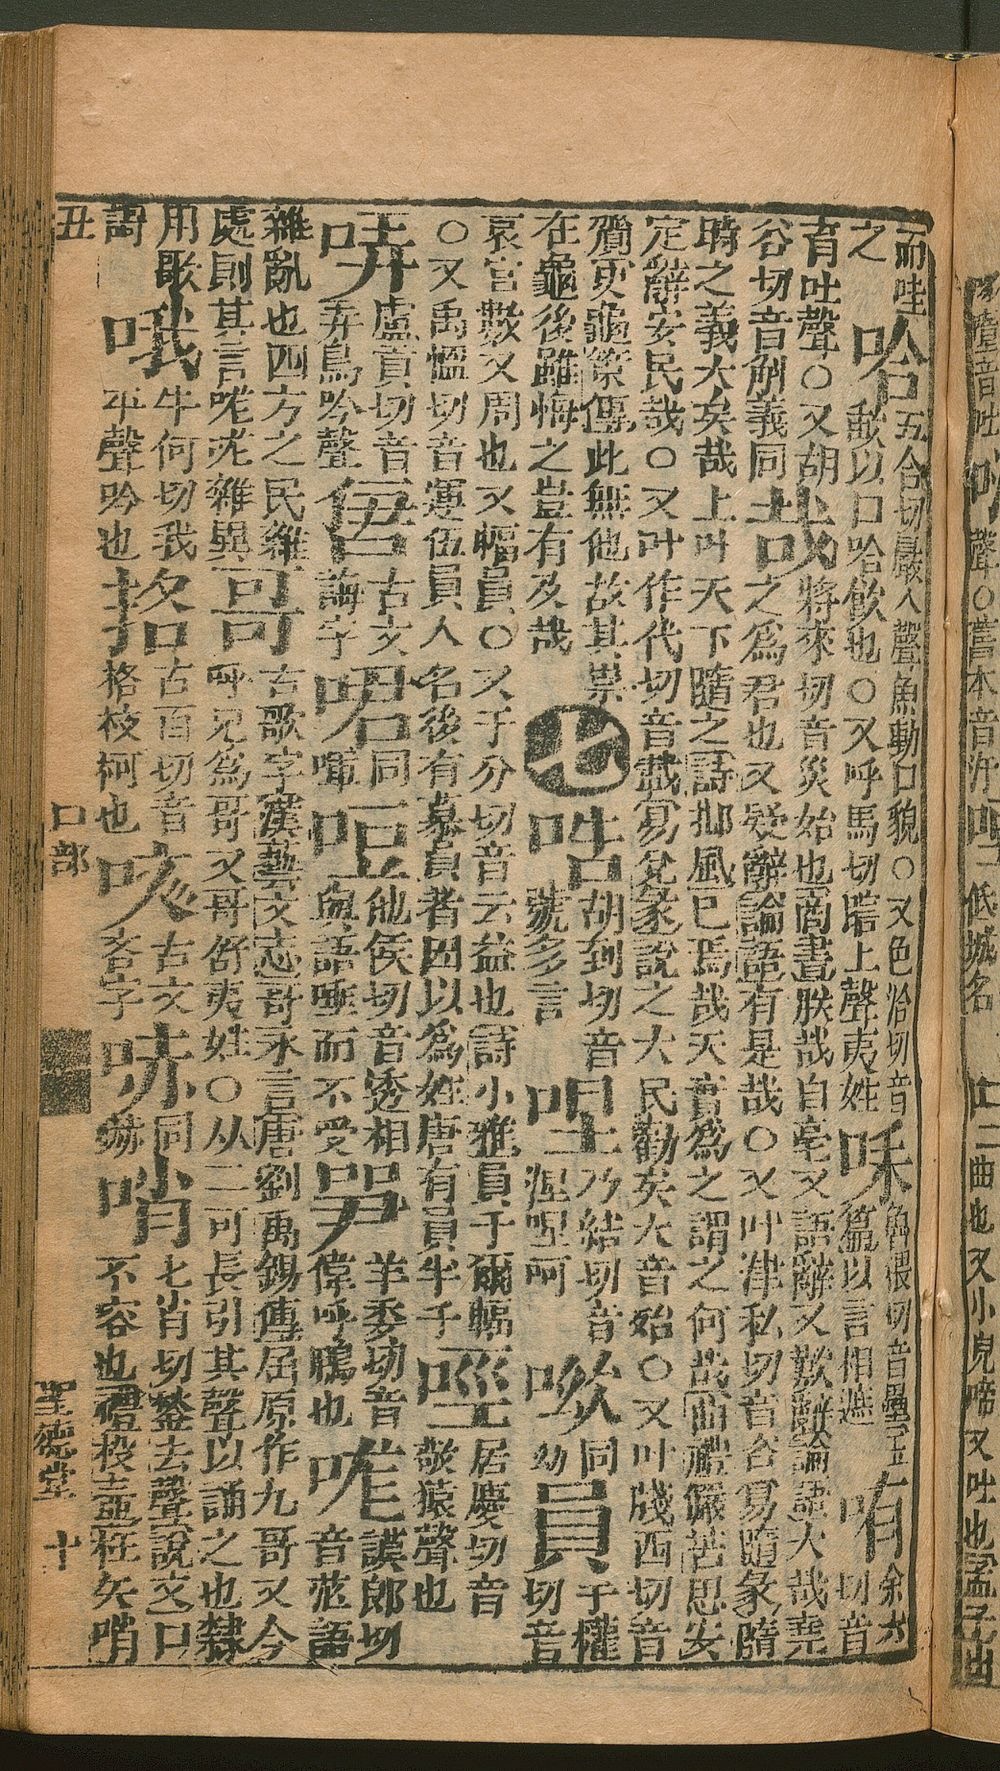 聲音吐
聲○嘗本音汁
低城名
二曲也又小兒啼又吐也孟子出
而哇之哈五合切嚴入聲魚動口貌○又色洽切音歃以口哈飲也○又呼馬切睹上聲夷姓魯猥切音壘玉篇以言相遮余六切音
育吐聲○又胡谷切音斛義同哉將來切音災始也商書朕哉自亳又語辭又歎辭論語大哉堯之為君也又疑辭論語有是哉○又叶津私切音咨易隨彖隨
時之義大矣哉上叶天下隨之詩邶風已焉哉天實為之謂之何哉曲禮儼若思安定辭安民哉○又叶作代切音載易兌彖說之大民勸矣大音始○又叶牋西切音
齎更龜筴傳此無他故其祟在龜後雖悔之豈有及哉七哠胡到切音號多言㖏乃結切音涅㖏呵同幼員于權切音
袁官數又周也又幅員○又于分切音云益也詩小雅員于爾輻○又禹慍切音運伍員人名後有慕員者因以為姓唐有員半千居慶切音敬猿聲也
哢盧貢切音弄鳥吟聲古文誨字同哣他侯切音透相與語唾而不受羊委切音偉呼鴡也哤謨郎切音茫語
雜亂也四方之民雜處則其言哤哤雜異哥古歌字漢藝文志哥永言唐劉禹錫傳屈原作九哥又今呼兄為哥又哥舒夷姓○从二可長引其聲以誦之也隸
用歌謌哦牛何切我平聲吟也挌古百切音格枝柯也古文吝字哧同嚇哨七肖切鍫去聲說文口不容也禮投壺枉矢哨
丑 口部 聖德堂 十